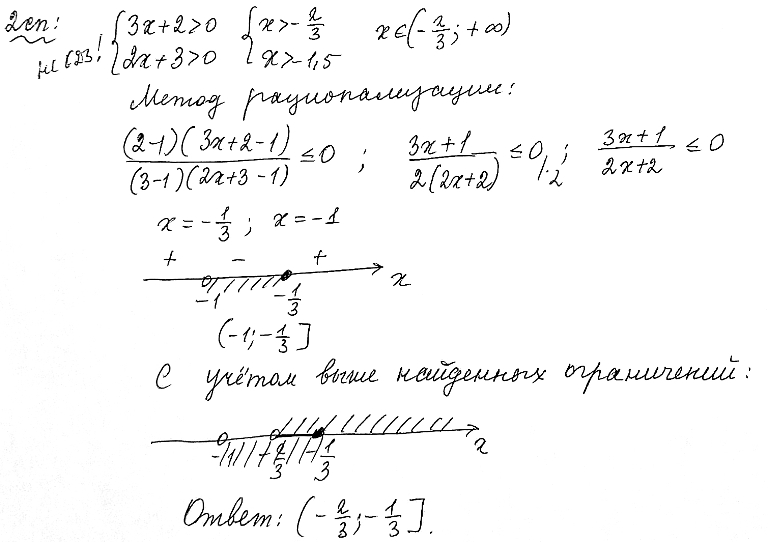 2сп: {3x+2>0 {x>-2/3 x∈(-2/3; +∞)
не ОДЗ! {2x+3>0 {x>-1,5
Метод рационализации:
(2-1)(3x+2-1)/(3-1)(2x+3-1) ≤0 ; 3x+1/2(2x+2) ≤0 |·2 ; 3x+1/2x+2 ≤0
x=-1/3 ; x=-1
+ - +
-1 -1/3 x
(-1;-1/3]
С учётом выше найденных ограничений:
-1 -2/3 -1/3 x
Ответ: (-2/3;-1/3].